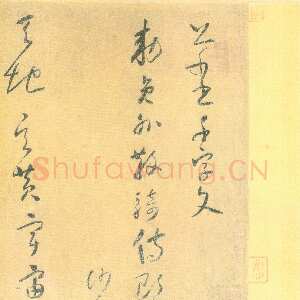 草書千字文
勅員外散騎侍郎
次
天地玄黃宇宙
ShufaWang.CN